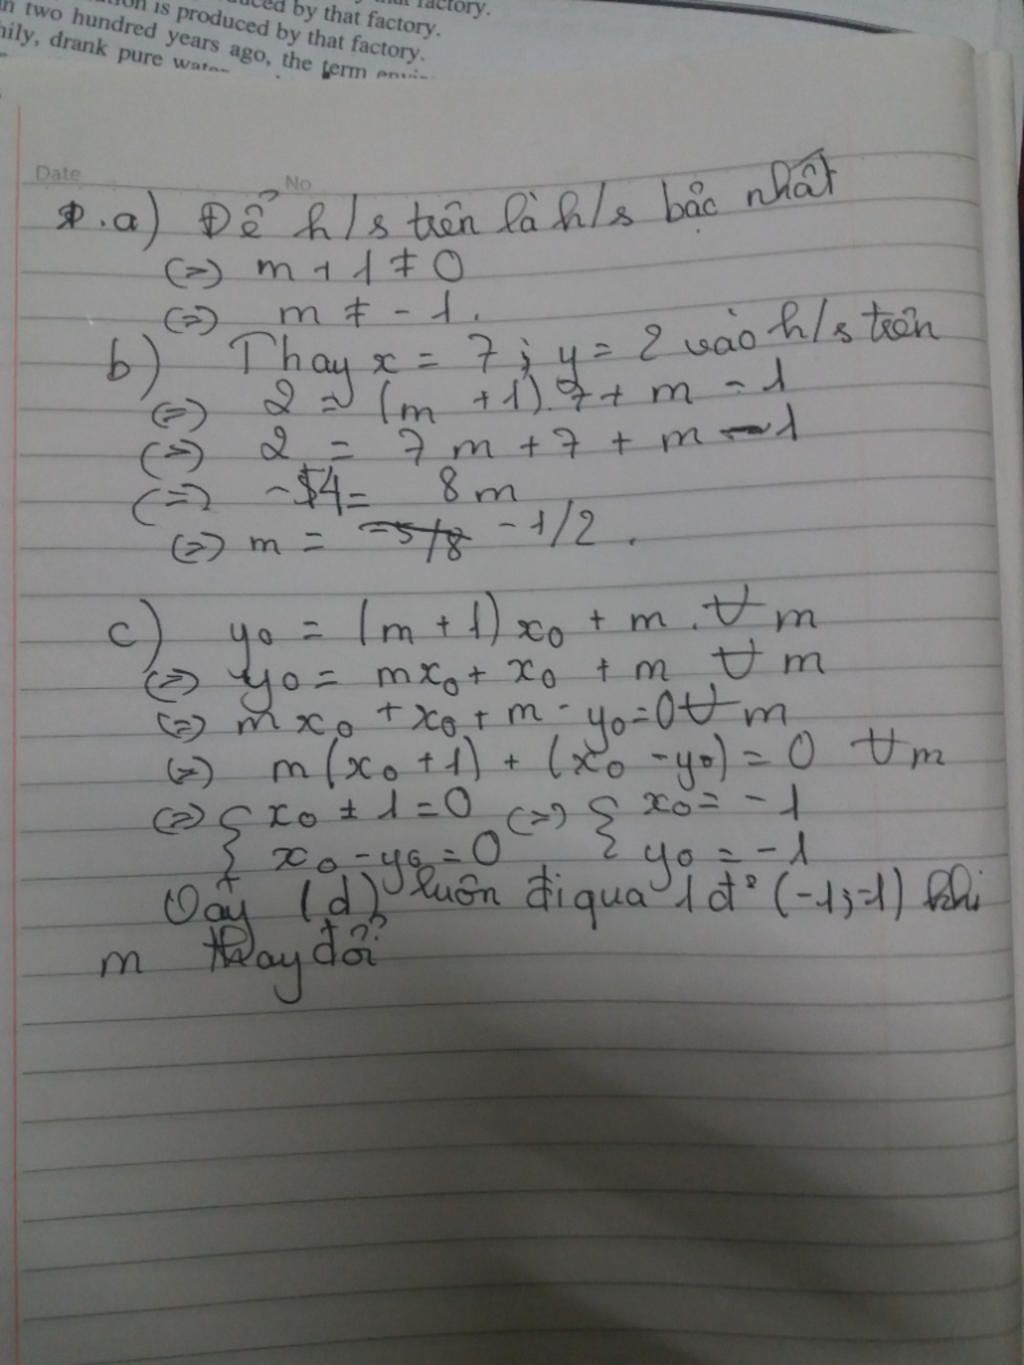 factory.
is produced by that factory.
n two hundred years ago, the term
nily, drank pure
Date
No
1.a) Để h/s trên là h/s bậc nhất
(=) m + 1 ≠ 0
(=) m ≠ - 1.
b) Thay x = 7 ; y = 2 vào h/s trên
(=) 2 = (m + 1).7 + m - 1
(=) 2 = 7m + 7 + m - 1
(=) -4 = 8m
(=) m = -5/8 -1/2.
c) y₀ = (m + 1)x₀ + m. ∀m
(=) y₀ = mx₀ + x₀ + m ∀m
(=) mx₀ + x₀ + m - y₀ = 0 ∀m
(=) m(x₀ + 1) + (x₀ - y₀) = 0 ∀m
(=) { x₀ + 1 = 0 (=) { x₀ = - 1
{ x₀ - y₀ = 0 { y₀ = - 1
Vậy (d) luôn đi qua 1 đ² (-1;-1) khi
m thay đổi